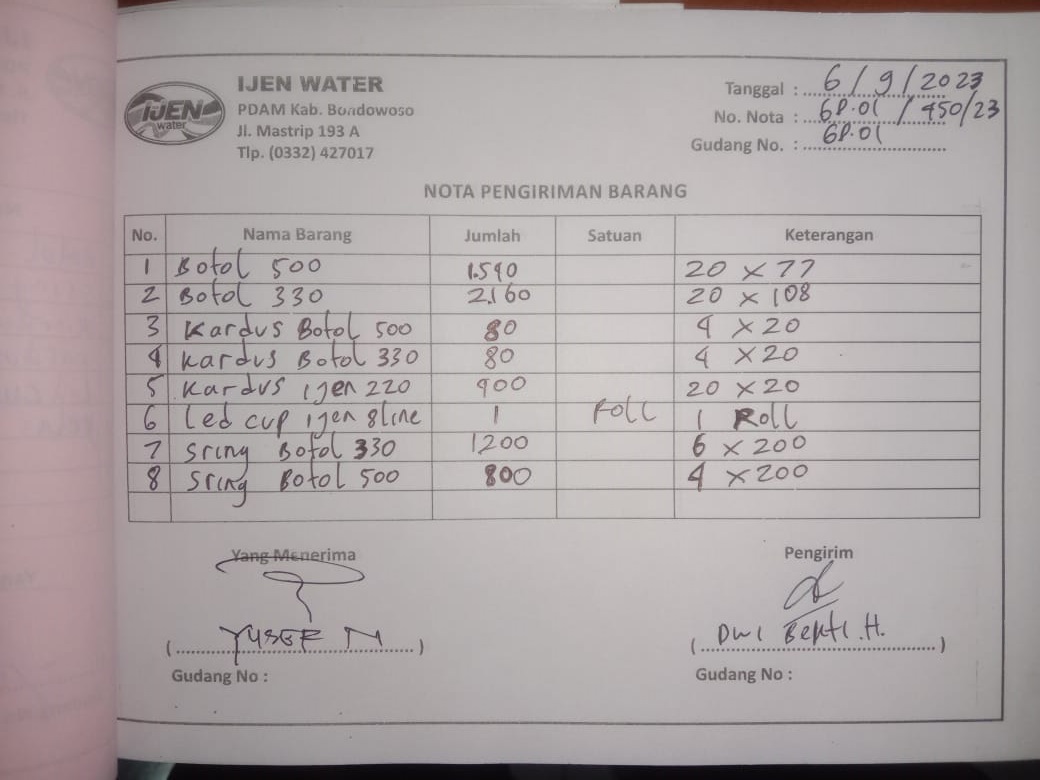 IJEN WATER
PDAM Kab. Bondowoso
Jl. Mastrip 193 A
Tlp. (0332) 427017
IJEN
water
Tanggal : 6/9/2023
No. Nota : 6P.01 / 450/23
Gudang No. : 6P.01
NOTA PENGIRIMAN BARANG
No. Nama Barang Jumlah Satuan Keterangan
1 Botol 500 1.540 20 x 77
2 Botol 330 2.160 20 x 108
3 Kardus Botol 500 80 4 x 20
4 Kardus Botol 330 80 4 x 20
5 Kardus ijen 220 400 20 x 20
6 Led cup ijen 8line 1 Roll 1 Roll
7 Sring Botol 330 1200 6 x 200
8 Sring Botol 500 800 4 x 200
Yang Menerima Pengirim
( YUSEF N ) ( Dwi Bekti. H. )
Gudang No : Gudang No :